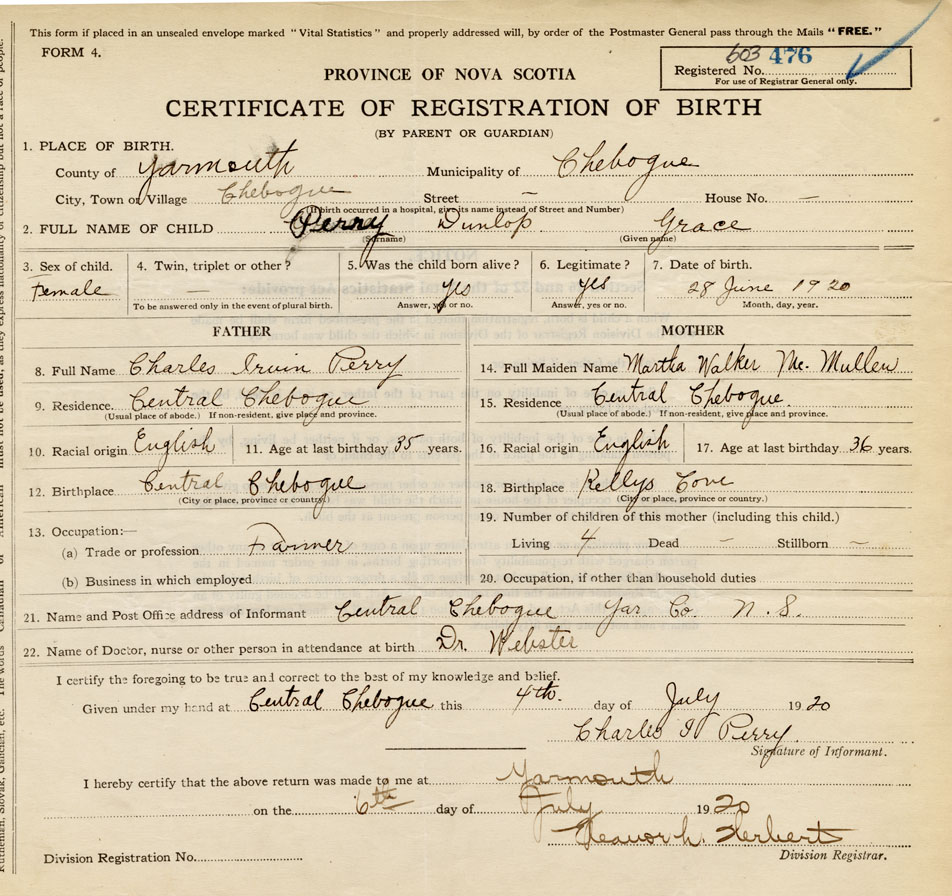 This form if placed in an unsealed envelope marked "Vital Statistics" and properly addressed will, by order of the Postmaster General pass through the Mails "FREE."
FORM 4.
603 476
Registered No.
For use of Registrar General only.
PROVINCE OF NOVA SCOTIA
CERTIFICATE OF REGISTRATION OF BIRTH
(BY PARENT OR GUARDIAN)
1. PLACE OF BIRTH.
County of Yarmouth Municipality of Chebogue
City, Town or Village Chebogue Street — House No. —
(If birth occurred in a hospital, give its name instead of Street and Number)
2. FULL NAME OF CHILD Perry Dunlop Grace
(Surname) (Given name)
3. Sex of child. 4. Twin, triplet or other? 5. Was the child born alive? 6. Legitimate? 7. Date of birth.
Female — yes yes 28 June 1920
To be answered only in the event of plural birth. Answer, yes or no. Answer, yes or no. Month, day, year.
FATHER MOTHER
8. Full Name Charles Irvin Perry 14. Full Maiden Name Martha Walker Mc. Mullen
9. Residence. Central Chebogue 15. Residence Central Chebogue.
(Usual place of abode.) If non-resident, give place and province. (Usual place of abode.) If non-resident, give place and province.
10. Racial origin English 11. Age at last birthday 35 years. 16. Racial origin English 17. Age at last birthday 36 years.
12. Birthplace Central Chebogue 18. Birthplace Kellys Cove
(City or place, province or country.) (City or place, province or country.)
19. Number of children of this mother (including this child.)
13. Occupation:—
(a) Trade or profession Farmer Living 4 Dead — Stillborn —
(b) Business in which employed 20. Occupation, if other than household duties
21. Name and Post Office address of Informant Central Chebogue Yar. Co. N.S.
22. Name of Doctor, nurse or other person in attendance at birth Dr. Webster
I certify the foregoing to be true and correct to the best of my knowledge and belief.
Given under my hand at Central Chebogue this 4th. day of July 1920
Charles I Perry.
Signature of Informant.
I hereby certify that the above return was made to me at Yarmouth
on the 6th day of July 1920
Eleanor h. Herbert
Division Registration No. Division Registrar.